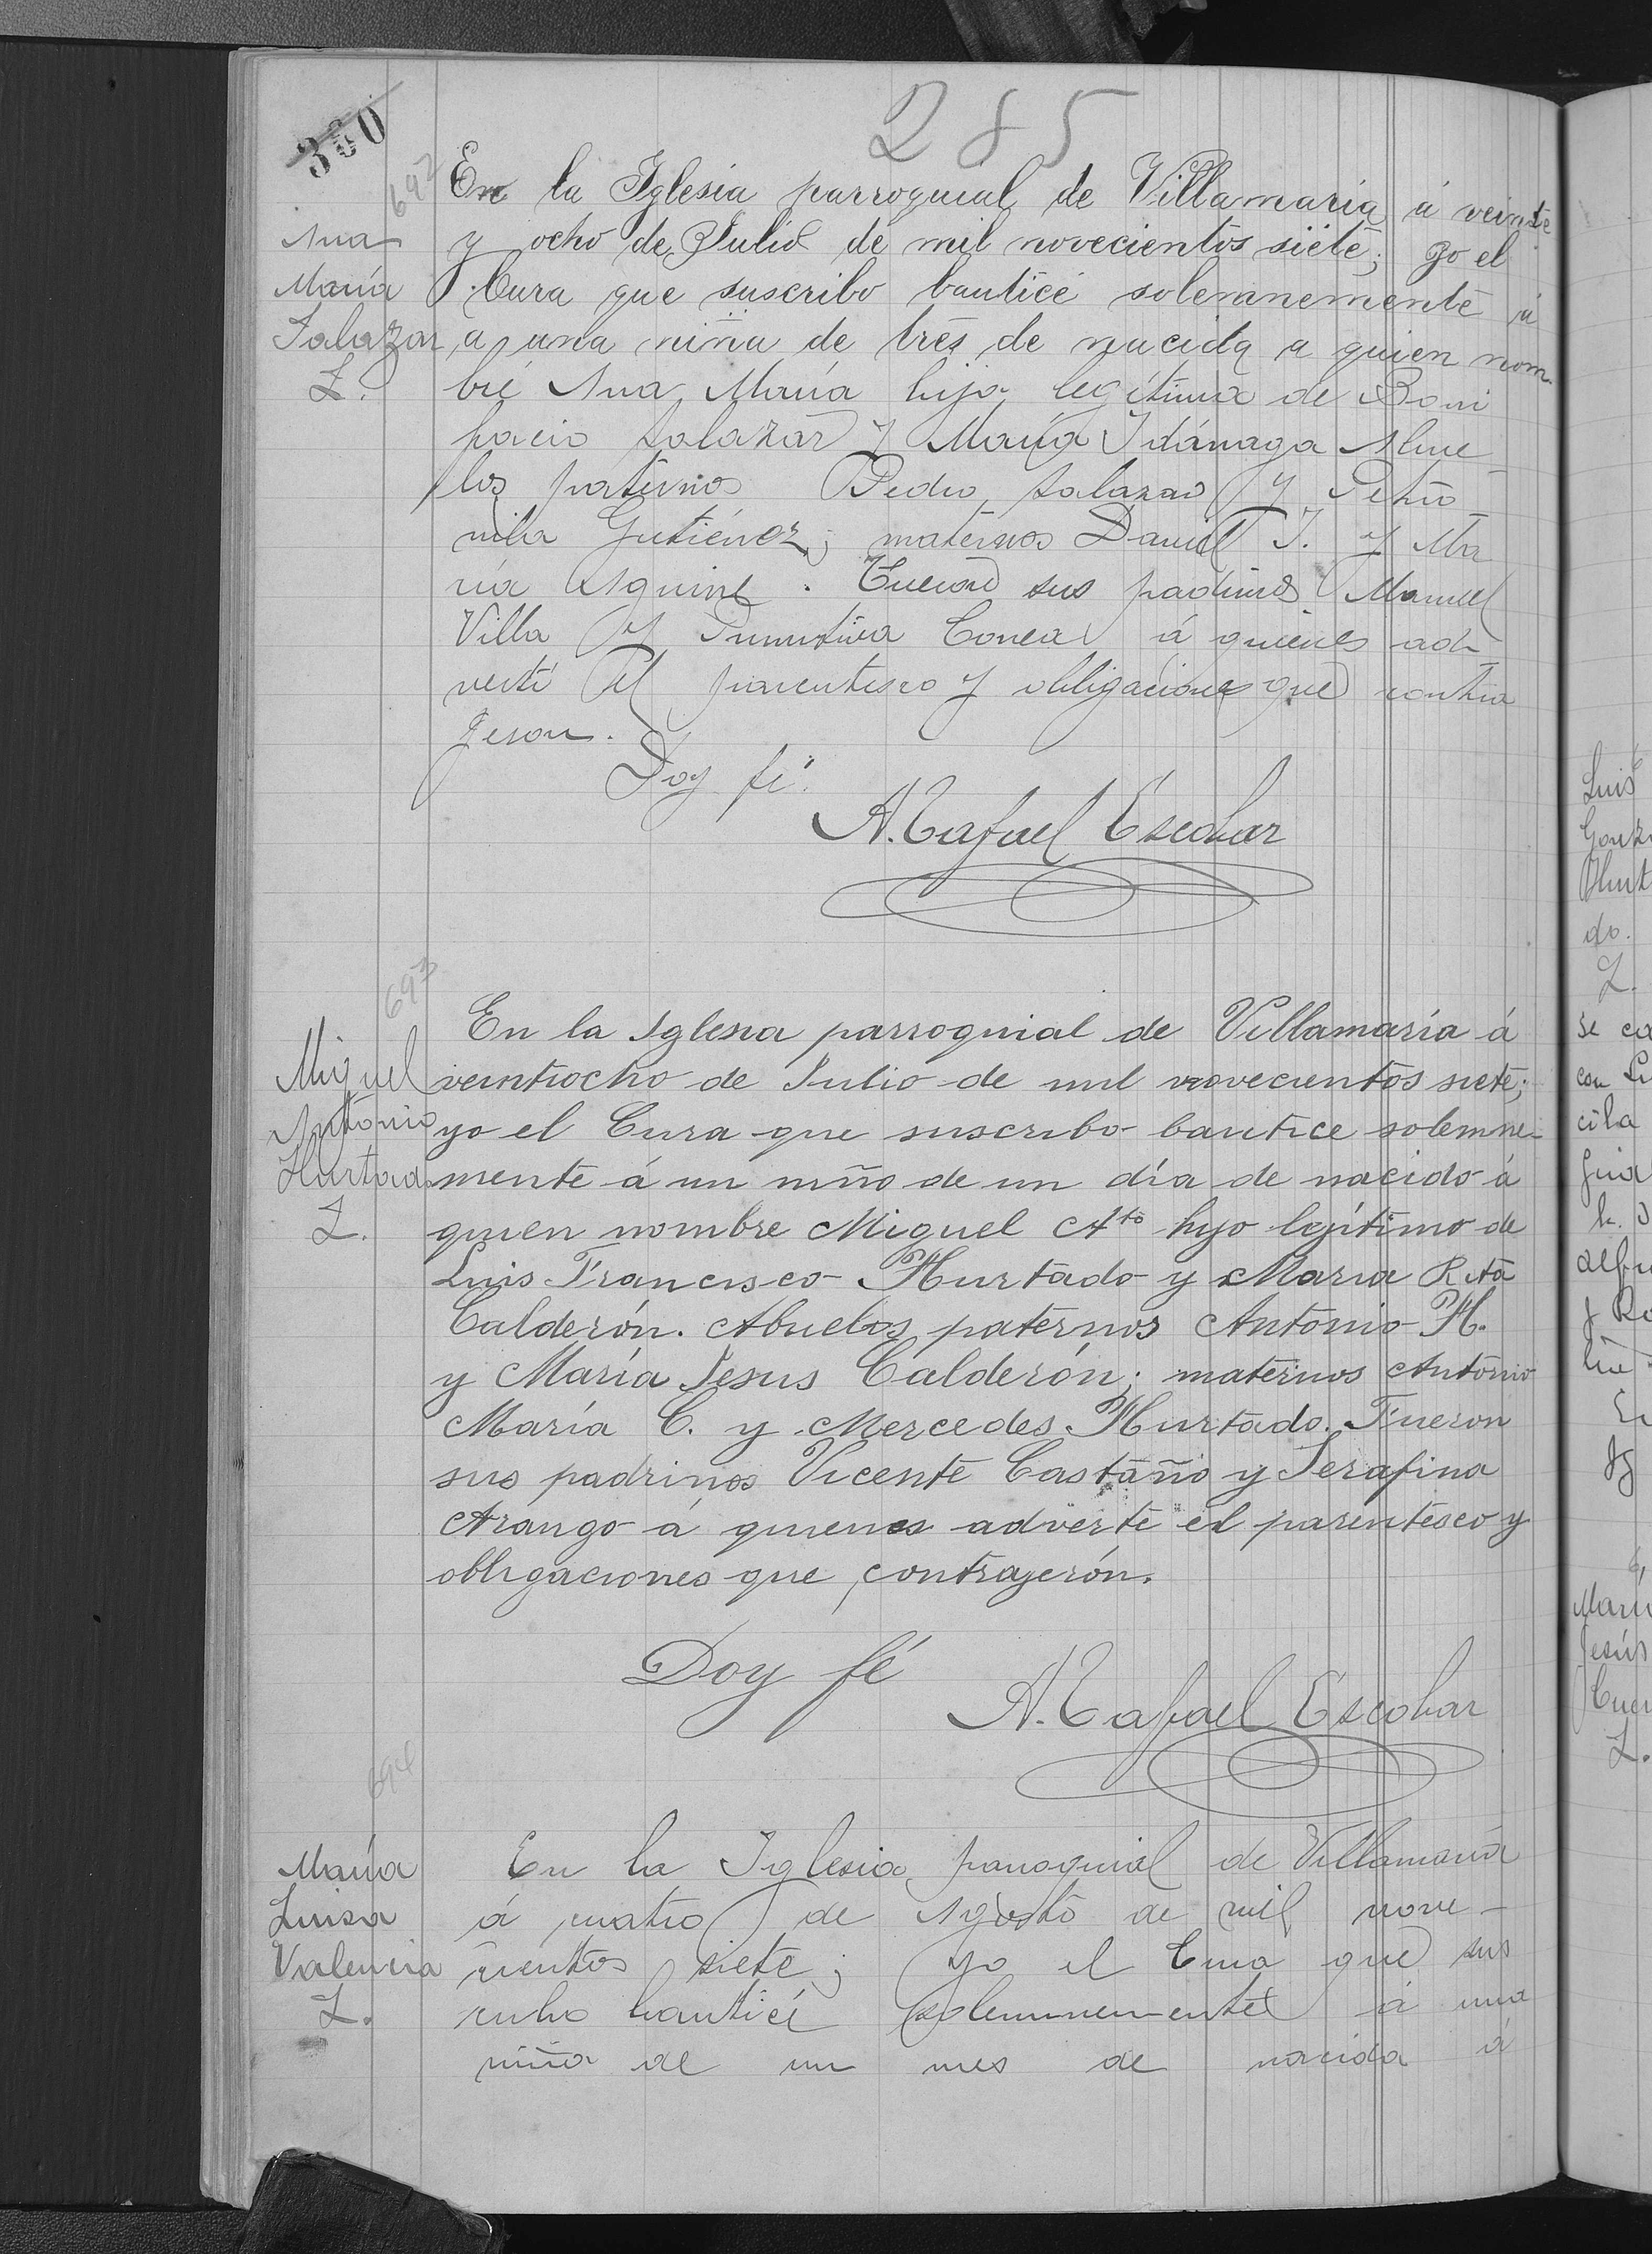 330
285
692
Ana
María
Salazar
L.
En la Iglesia parroquial de Villamaría á veinte
y ocho de Julio de mil novecientos siete; yo el
Cura que suscribo bauticé solemnemente á
a una niña de tres de nacida a quien nom-
bré Ana María hija legítima de Boni
facio Salazar y María Idánaga Abue
los paternos Pedro Salazar y Petro
nila Gutiérrez; maternos Daniel I. y Ma
ría Aguirre. Fueron sus padrinos Manuel
Villa y Primitiva Correa á quienes ad-
vertí el parentesco y obligaciones que contra
jeron.
Doy fé.
A. Rafael Escobar
693
Miguel
Antonio
Hurtado
L.
En la Iglesia parroquial de Villamaría á
veintiocho de Julio de mil novecientos siete;
yo el Cura que suscribo bautice solemne-
mente á un niño de un día de nacido á
quien nombre Miguel Ato hijo legítimo de
Luis Francisco Hurtado y Maria Rita
Calderón. Abuelos paternos Antonio H.
y María Jesus Calderón; maternos Antonio
María C. y Mercedes Hurtado. Fueron
sus padrinos Vicente Castaño y Serafina
Arango á quienes advertí el parentesco y
obligaciones que contrajerón.
Doy fé
A. Rafael Escobar
694
María
Luisa
Valencia
L.
En la Iglesia parroquial de Villamaría
á cuatro de Agosto de mil nove-
cientos siete; yo el Cura que sus
cribo bauticé solemnemente á una
niña de un mes de nacida á
Luis
Gonz
Hurt
do.
L.
se ca
con
cila
Marí
Jesús
L.